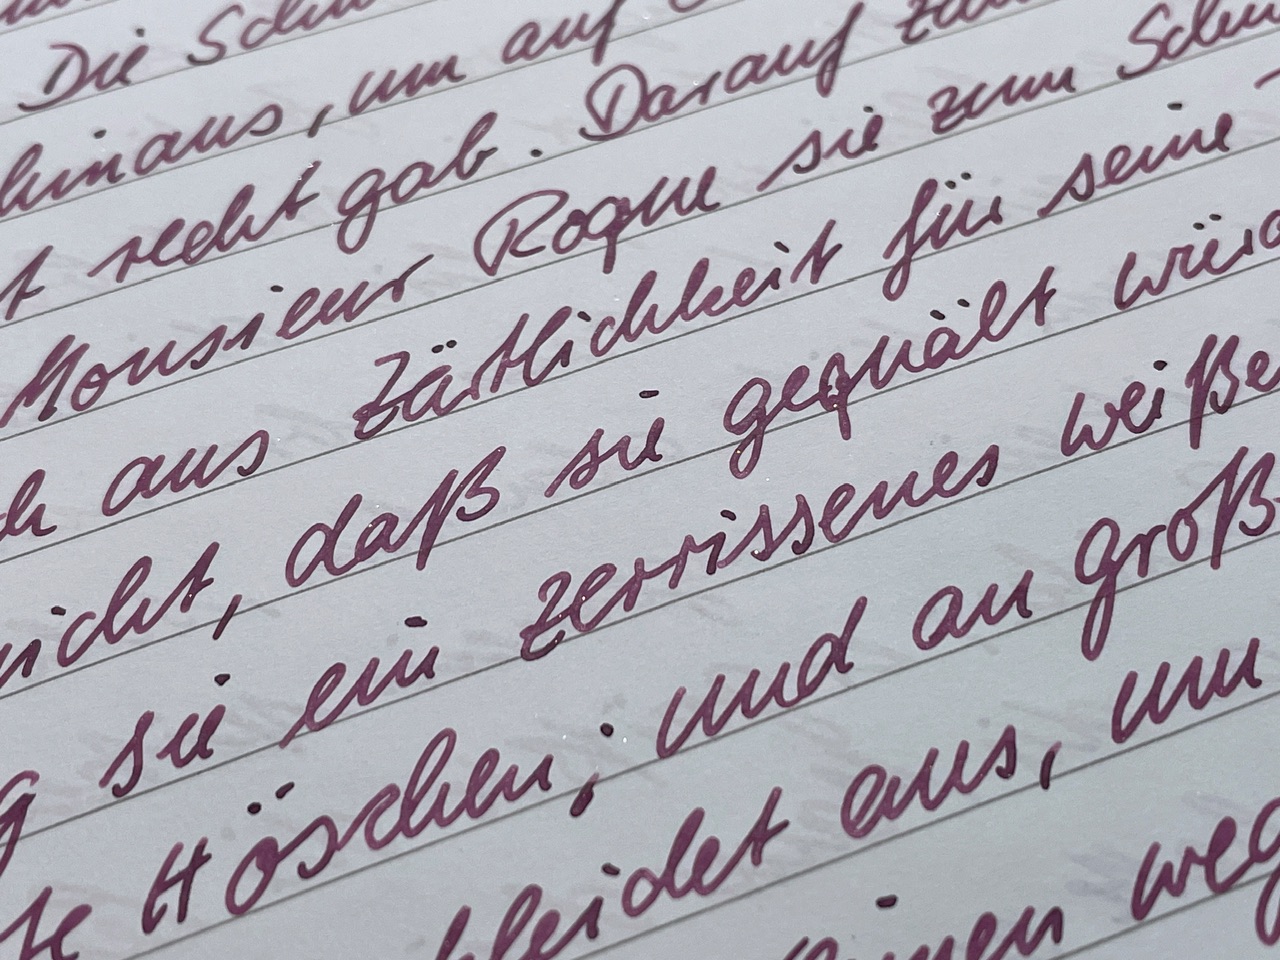 Die
hinaus, um auf
recht gab. Darauf
Monsieur Roque sie zum
aus Zärtlichkeit für seine
nicht, daß sie gequält
sie ein zerrissenes weiße
Höschen; und an groß-
kleidet aus, um
weg